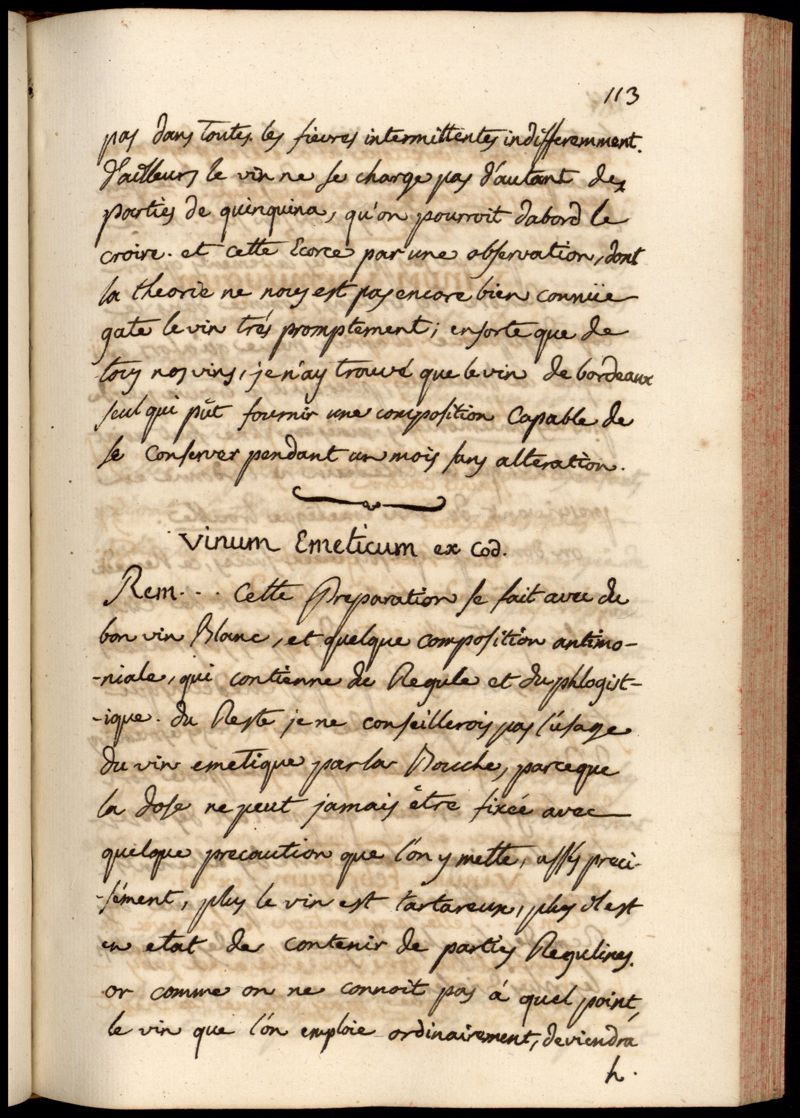 113
pas dans toutes les fievres intermittentes indifferemment.
d'ailleurs le vin ne se charge pas d'autant des
parties de quinquina, qu'on pourroit dabord le
croire. et cette Ecorce par une observation, dont
la theorie ne nous est pas encore bien connüe
gate le vin trés promptement; ensorte que de
tous nos vins, je n'ay trouvé que le vin de bordeaux
seul qui pût fournir une composition Capable de
se conserver pendant un mois sans alteration.
Vinum Emeticum ex Cod.
Rem... Cette Preparation se fait avec du
bon vin Blanc, et quelque composition antimo-
-niale, qui contienne du Regule et du phlogist-
-ique. du Reste je ne conseillerois pas l'usage
du vin emetique par la Bouche, parceque
la dose ne peut jamais être fixée avec
quelque precaution que l'on y mette, assés preci-
-sément, plus le vin est tartareux, plus il est
en etat de contenir de parties Regulines.
or comme on ne connoit pas á quel point,
le vin que l'on emploie ordinairement, deviendra
h.